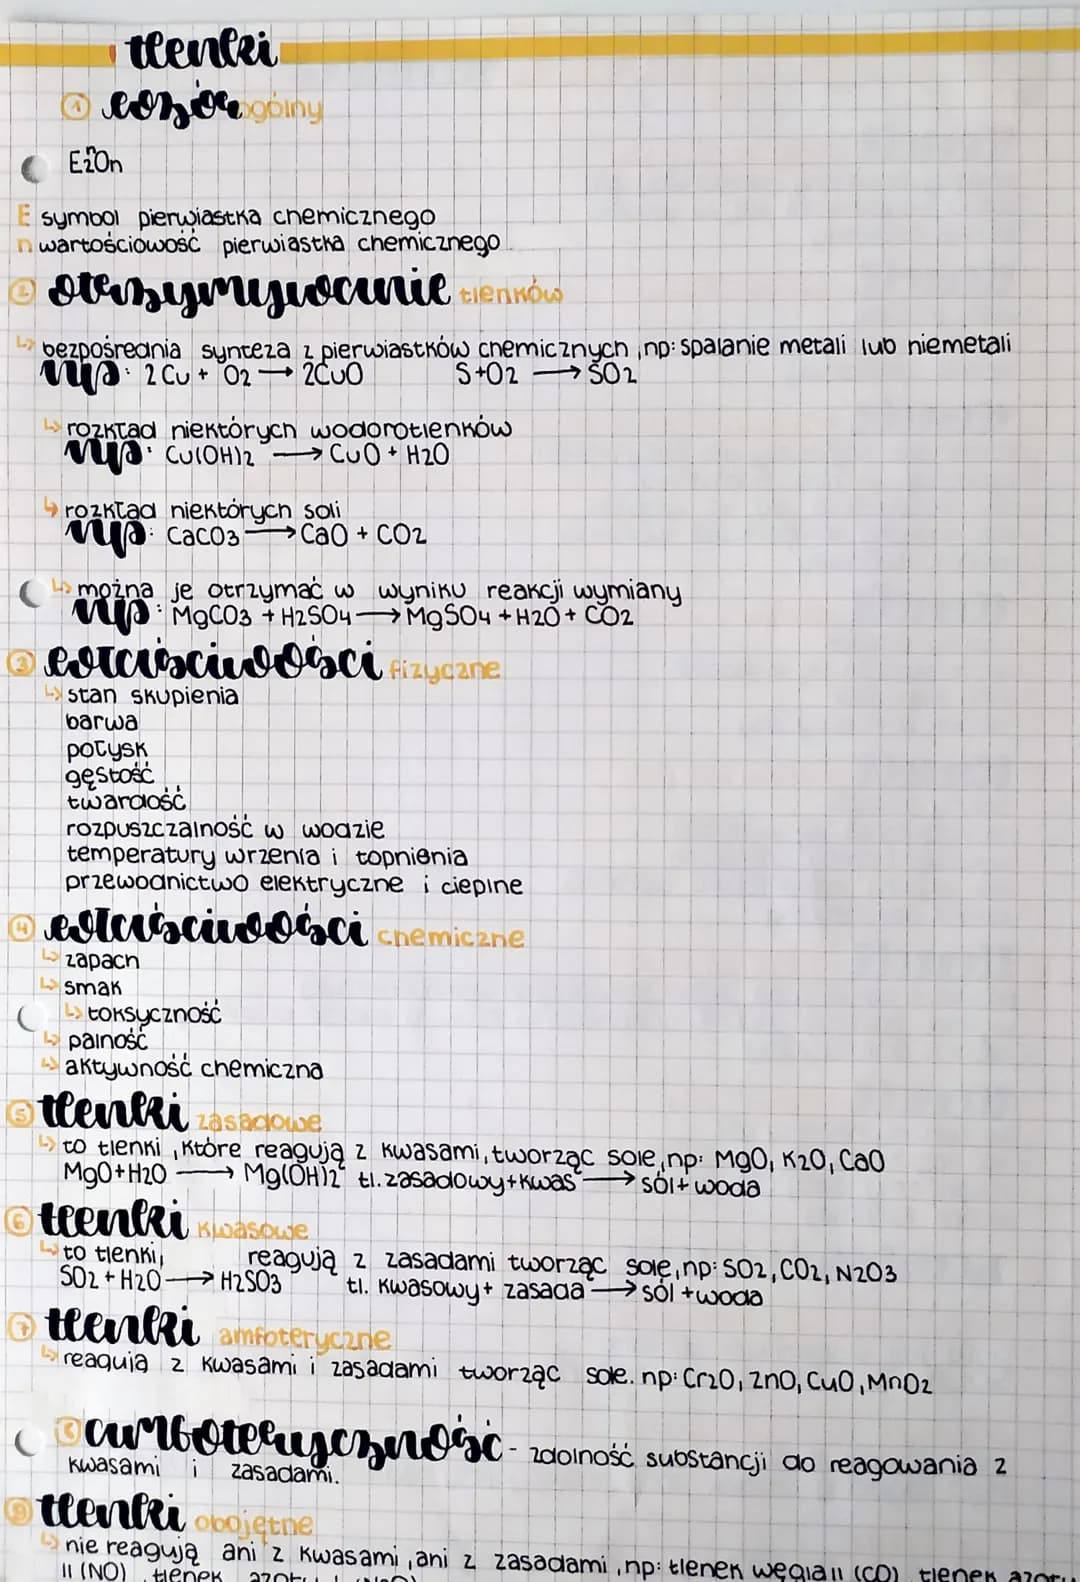 tlenki
① wzór ogólny
E2ⁿOn
E symbol pierwiastka chemicznego
n wartościowość pierwiastka chemicznego
② otrzymywanie tlenków
↳ bezpośrednia synteza z pierwiastków chemicznych, np: spalanie metali lub niemetali
np: 2Cu + O2 → 2CuO S+O2 → SO2
↳ rozkład niektórych wodorotlenków
np: Cu(OH)2 → CuO + H2O
↳ rozkład niektórych soli
np: CaCO3 → CaO + CO2
↳ można je otrzymać w wyniku reakcji wymiany
np: MgCO3 + H2SO4 → MgSO4 + H2O + CO2
③ właściwości fizyczne
↳ stan skupienia
barwa
połysk
gęstość
twardość
rozpuszczalność w wodzie
temperatury wrzenia i topnienia
przewodnictwo elektryczne i cieplne
④ właściwości chemiczne
↳ zapach
↳ smak
↳ toksyczność
↳ palność
↳ aktywność chemiczna
⑤ tlenki zasadowe
↳ to tlenki, które reagują z kwasami, tworząc sole, np: MgO, K2O, CaO
MgO+H2O → Mg(OH)2 tl. zasadowy+kwas → sól+ woda
⑥ tlenki kwasowe
↳ to tlenki, reagują z zasadami tworząc sole, np: SO2, CO2, N2O3
SO2 + H2O → H2SO3 tl. kwasowy+ zasada → sól +woda
⑦ tlenki amfoteryczne
↳ reagują z kwasami i zasadami tworząc sole. np: Cr2O, ZnO, CuO, MnO2
⑧ amfoteryczność - zdolność substancji do reagowania z
kwasami i zasadami.
⑨ tlenki obojętne
↳ nie reagują ani z kwasami, ani z zasadami, np: tlenek węgla II (CO), tlenek azotu
II (NO) tlenek azotu